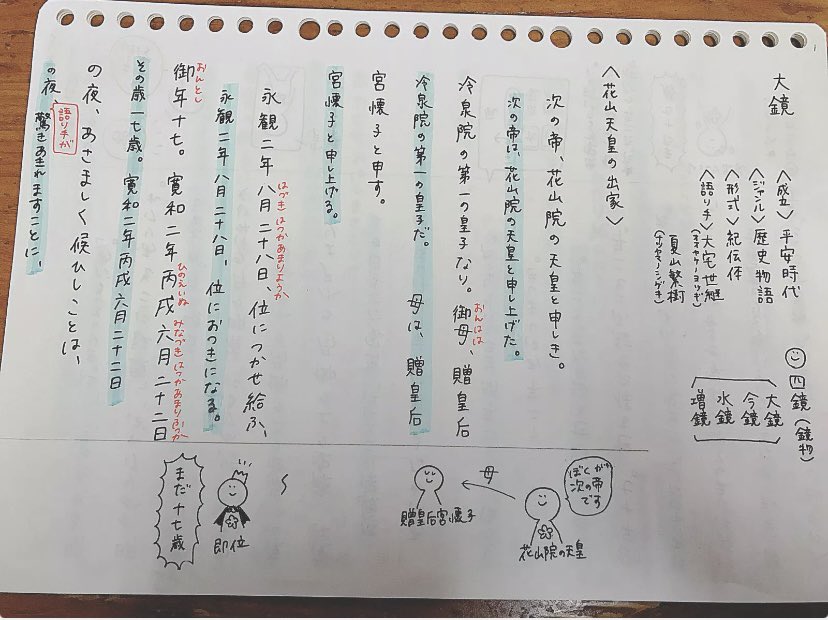 大鏡
〈成立〉平安時代
〈ジャンル〉歴史物語
〈形式〉紀伝体
〈語り手〉大宅世継
(オオヤケノヨツギ)
夏山繁樹
(ナツヤマノシゲキ)
四鏡(鏡物)
大鏡
今鏡
水鏡
増鏡
〈花山天皇の出家〉
次の帝、花山院の天皇と申しき。
次の帝は、花山院の天皇と申し上げた。
冷泉院の第一の皇子なり。御母、贈皇后
おんはは
冷泉院の第一の皇子だ。母は、贈皇后
宮懐子と申す。
宮懐子と申し上げる。
永観二年八月二十八日、位につかせ給ふ、
はづきはつかあまりようか
永観二年八月二十八日、位におつきになる。
御年十七。寛和二年丙戌六月二十二日
おんとし
ひのえいぬ
みなづきはつかあまりふつか
その歳十七歳。寛和二年丙戌六月二十二日
の夜、あさましく候ひしことは、
の夜、驚きあきれますことに、
語り手が
ぼくが
次の帝
です
花山院の天皇
母
贈皇后宮懐子
即位
まだ十七歳